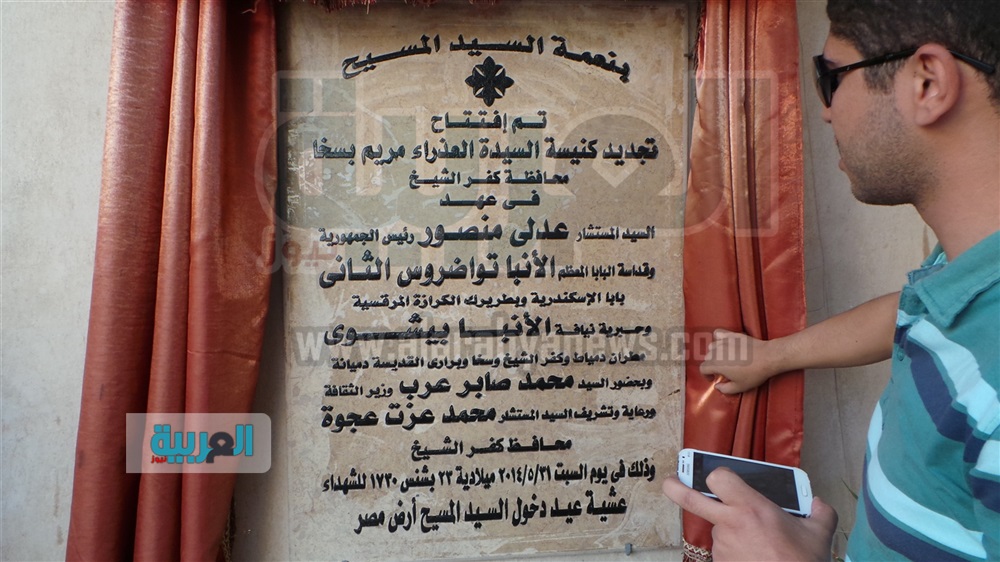 بنعمة السيد المسيح
تم إفتتاح
تجديد كنيسة السيدة العذراء مريم بسخا
محافظة كفر الشيخ
فى عهد
السيد المستشار عدلى منصور رئيس الجمهورية
وقداسة البابا المعظم الأنبا تواضروس الثانى
بابا الإسكندرية وبطريرك الكرازة المرقسية
وحبرية نيافة الأنبا بيشوى
مطران دمياط وكفر الشيخ وسخا وبرارى القديسة دميانة
وبحضور السيد محمد صابر عرب وزير الثقافة
ورعاية وتشريف السيد المستشار محمد عزت عجوة
محافظ كفر الشيخ
وذلك فى يوم السبت ٢٠١٤/٥/٣١ ميلادية ٢٣ بشنس ١٧٣٠ للشهداء
عشية عيد دخول السيد المسيح أرض مصر
العربية
نيوز